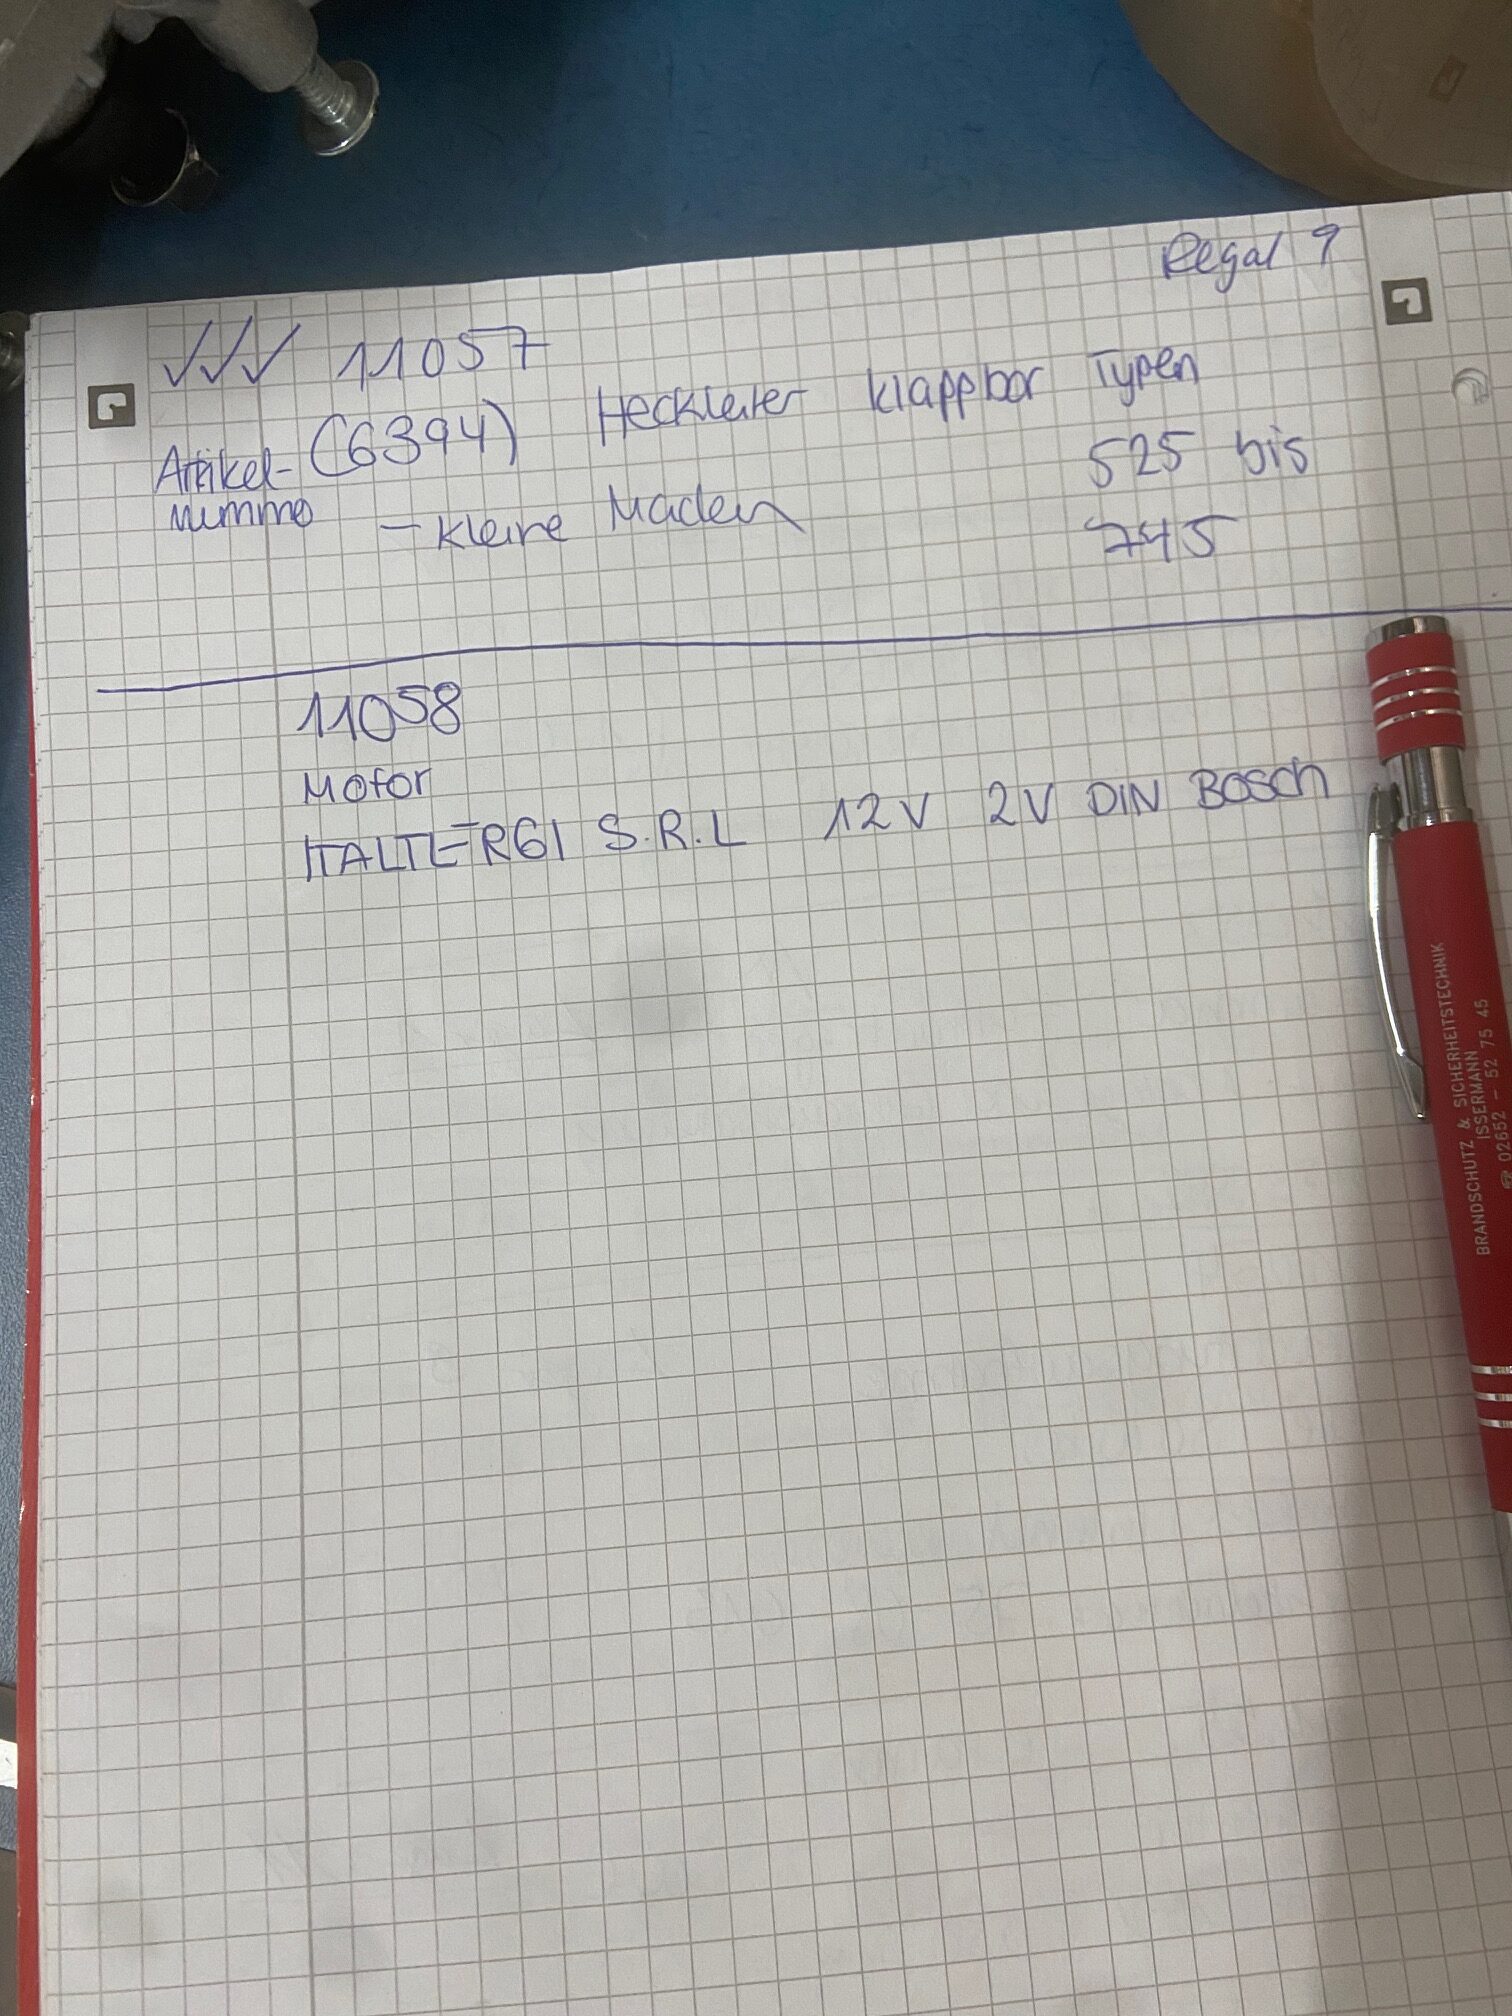 Regal 9
✓✓✓ 11057
Artikel- (6394) Heckleiter klappbar Typen
nummer 525 bis
- kleine Macken 745
11058
Motor
ITALTERGI S.R.L 12V 2V DIN BOSCH
BRANDSCHUTZ & SICHERHEITSTECHNIK
ISSERMANN
02652 - 52 75 45